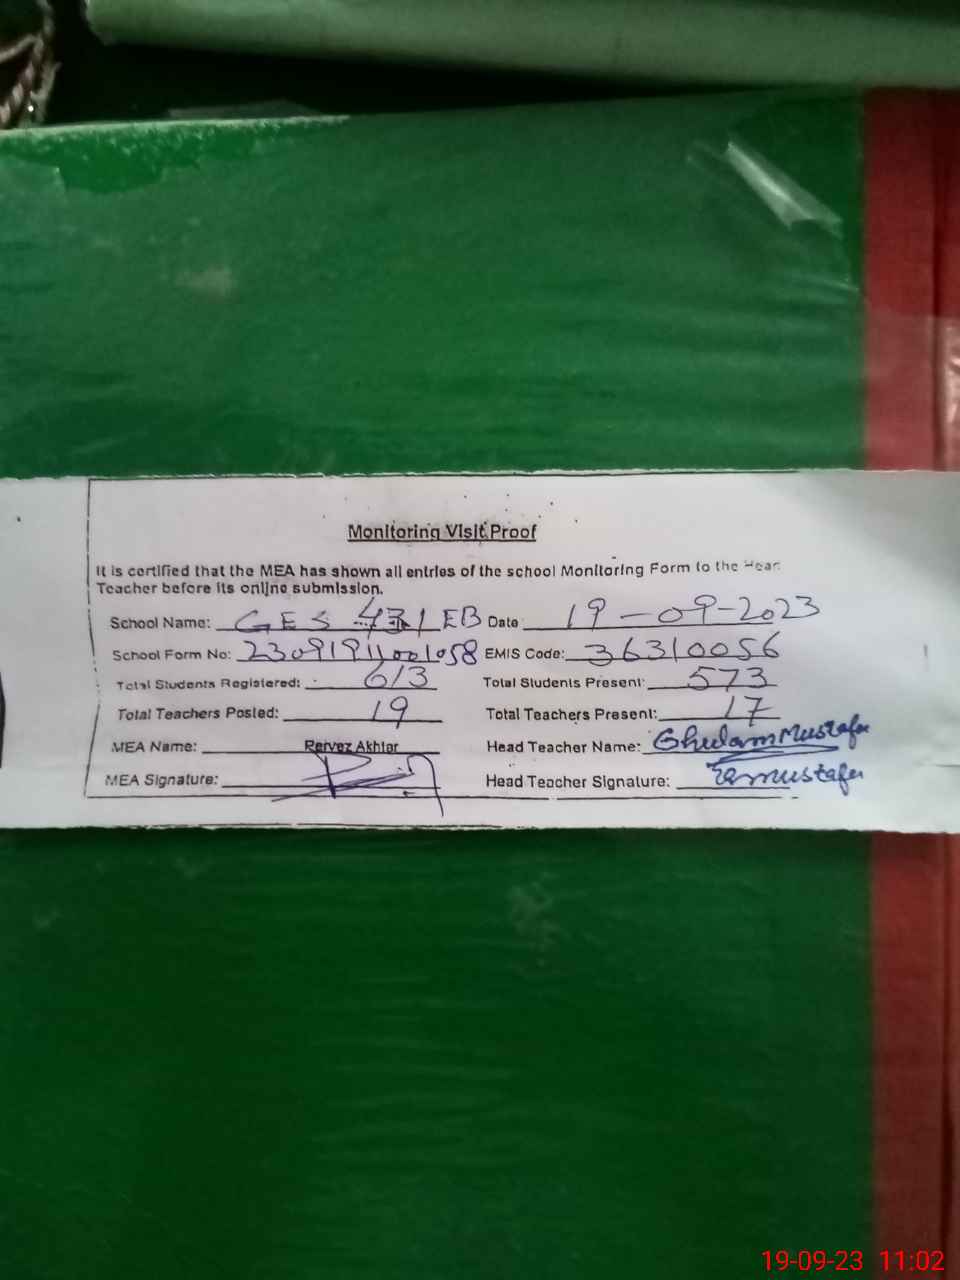 Monitoring Visit Proof
It is certified that the MEA has shown all entries of the school Monitoring Form to the Head
Teacher before its online submission.
School Name: GES 431 EB Date 19-09-2023
School Form No: 23091911001058 EMIS Code: 36310056
Total Students Registered: 613 Total Students Present: 573
Total Teachers Posted: 19 Total Teachers Present: 17
MEA Name: Pervez Akhtar Head Teacher Name: Ghulam Mustafa
MEA Signature: Head Teacher Signature: Gmustafa
19-09-23 11:02